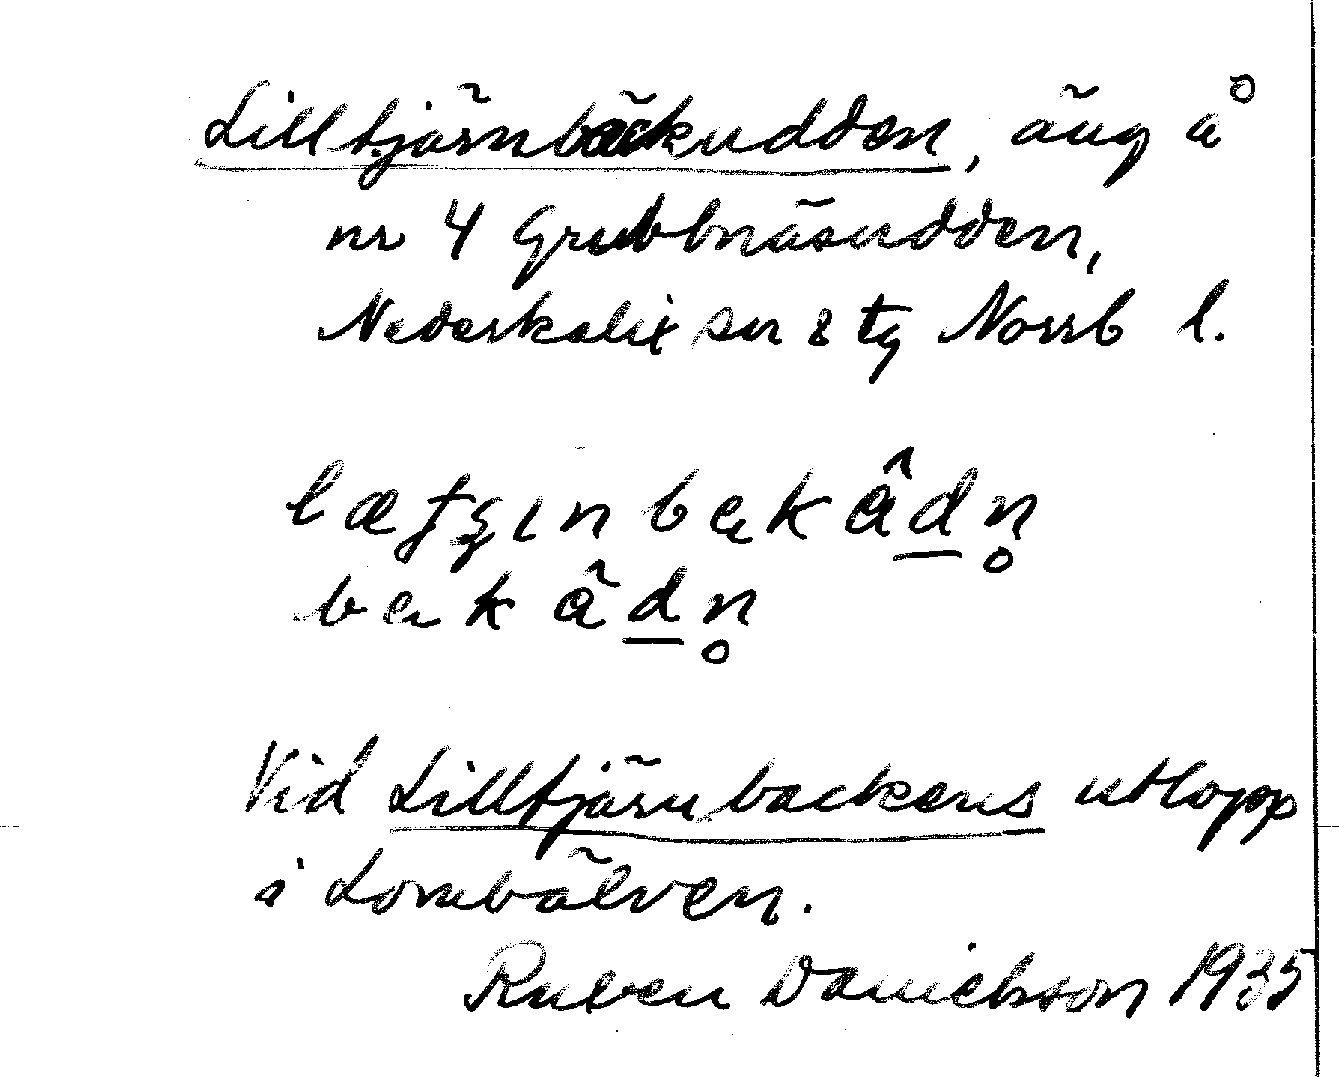 Lilltjärnbäckudden, äng å
nr 4 Grubbnäsudden,
Nederkalix sn & tg Norrb l.
bekâdn̥
Vid Lilltjärnbäckens utlopp
i Lombälven.
Ruben Danielsson 1935